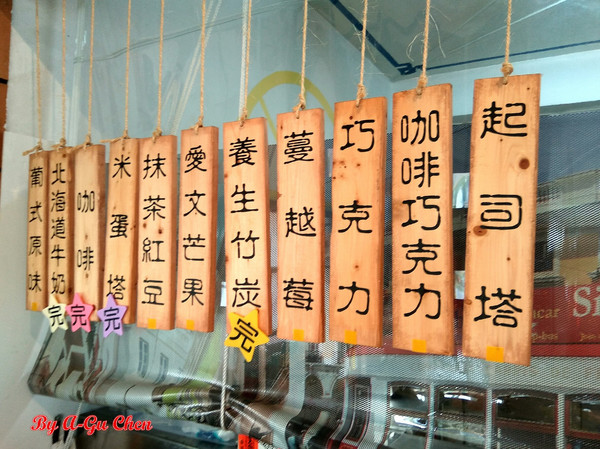 葡式原味
北海道牛奶
完
咖啡
完
米蛋塔
完
抹茶紅豆
愛文芒果
養生竹炭
完
蔓越莓
巧克力
咖啡巧克力
起司塔
By A-Gu Chen